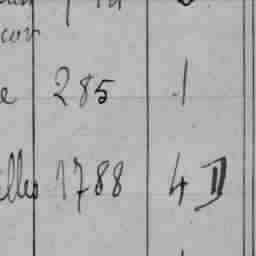 con
e 285 1
illes 1788 4 II